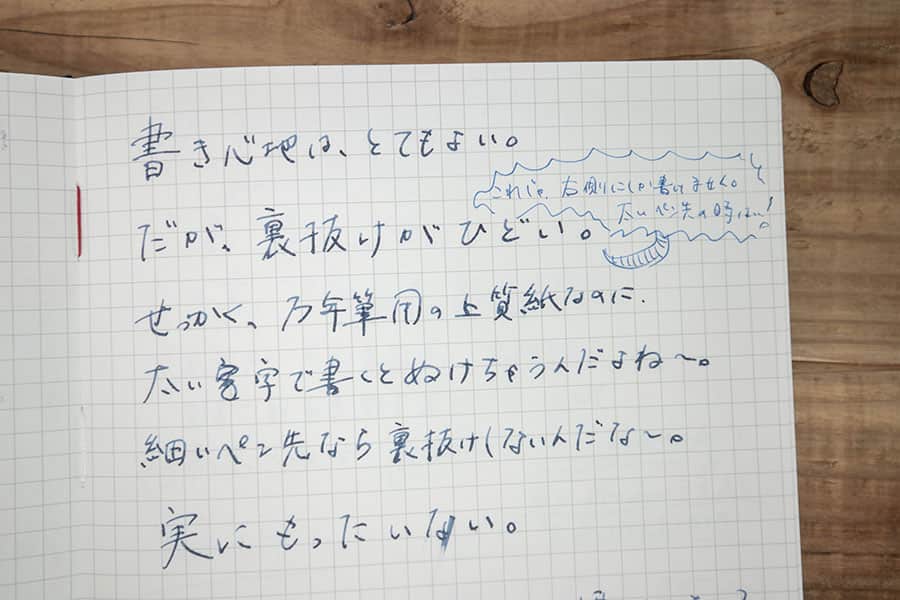 書き心地は、とてもよい。
これじゃ、右側にしか書けません。
太いペン先の時は…!
だが、裏抜けがひどい。
せっかく、万年筆用の上質紙なのに、
太い字で書くとぬけちゃうんだよね〜。
細いペン先なら裏抜けしないんだな〜。
実にもったいない。